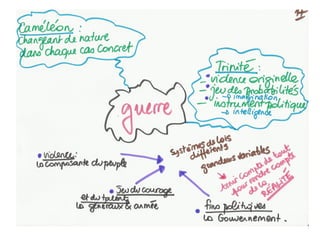 Caméléon :
changeant de nature
dans chaque cas concret
Trinité :
- violence originelle
- jeu des probabilités
↳ imagination
- instrument politique
↳ intelligence
guerre
systèmes de lois
différents
grandeurs variables
Tenir compte de tout
pour rendre compte
de la
RÉALITÉ
• violence :
la composante du peuple
• Jeu du courage
et du talent :
le généraux & armée
• fins politiques
↳ Gouvernement.